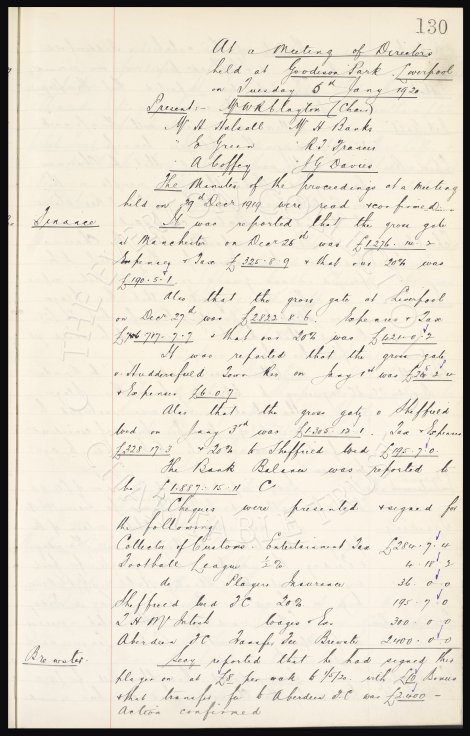 130
At a Meeting of Directors
held at Goodison Park, Liverpool
on Tuesday 6th Jany 1920
Present:- Mr W R Clayton (Chair)
Mr H Halsall Mr H Banks
" E Green " R T Frances
" A Coffey " J G Davies
The Minutes of the proceedings at a Meeting
held on Decr 1919 were read & confirmed.
Finance It was reported that the gross gate
at Manchester on Decr 26th was £1276. 14.
Expenses & Tax £325.8.9 & that our 20% was
£190.5.1
Also that the gross gate at Liverpool
on Decr 27th was £2823.8.6. Expenses & Tax
£717.7.7 & that our 20% was £421.0.2
It was reported that the gross gate
v. Huddersfield Town Res on Jany 1st was
& Expenses £6.0.7
Also that the gross gate v Sheffield
Wed on Jany 3rd was £1305.13.1. Tax & Expenses
£328.17.3 & 20% to Sheffield Wed £195.7.0.
The Bank Balance was reported to
be £1887.15.11 Cr
Cheques were presented & signed for
the following
Collector of Customs. Entertainment Tax £284.7.4
Football League ½% 4.18.3
do Players Insurance 36.0.0
Sheffield Wed F.C. 20% 195.7.0
T H McIntosh Wages & Exs. 300.0.0
Aberdeen F.C. Transfer Fee Brewster 2400.0.0
Brewster. Secy reported that he had signed this
player on at £8 per week to with £10 Bonus
& that transfer fee to Aberdeen F.C was £2400 -
Action confirmed